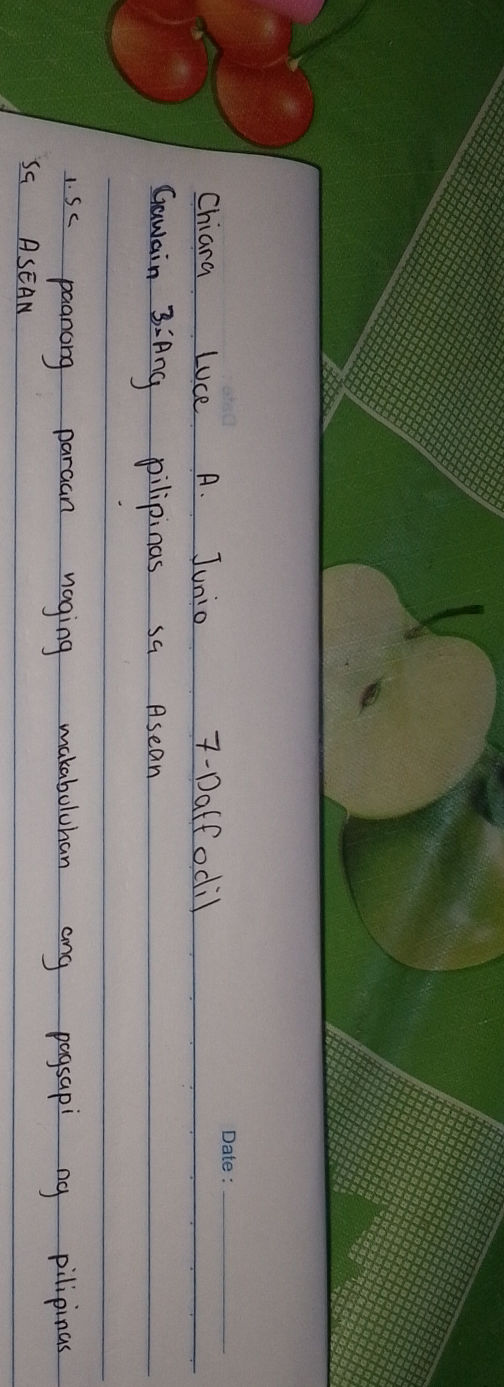 Date:
Chiara Luce A. Junio 7-Daffodil
Gawain 3: Ang pilipinas sa Asean
1. Sa paanong paraan naging makabuluhan ang pagsapi ng pilipinas
sa ASEAN